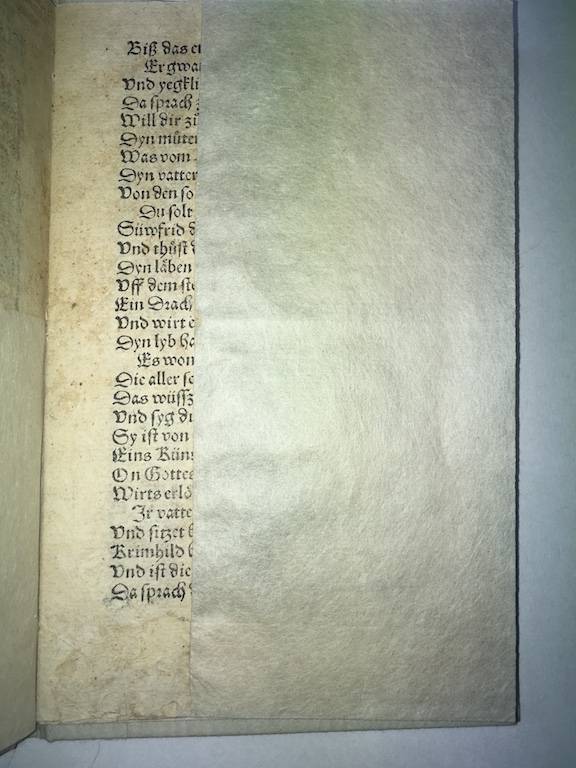 Biß das er
Er gwa
Vnd yegkli
Da sprach z
Will dir zů
Dyn můter
Was vom
Dyn vatter
Von den so
Du solt
Süwfrid d
Vnd thůst d
Dyn läben
Vff dem ste
Ein Drach
Vnd wirt e
Dyn lyb ha
Es won
Die aller sc
Das wüssz
Vnd syg du
Sy ist von
Eins Küni
On Gottes
Wirts erlö
Ir vatte
Vnd sitzet b
Krimhild
Vnd ist die
Da sprach